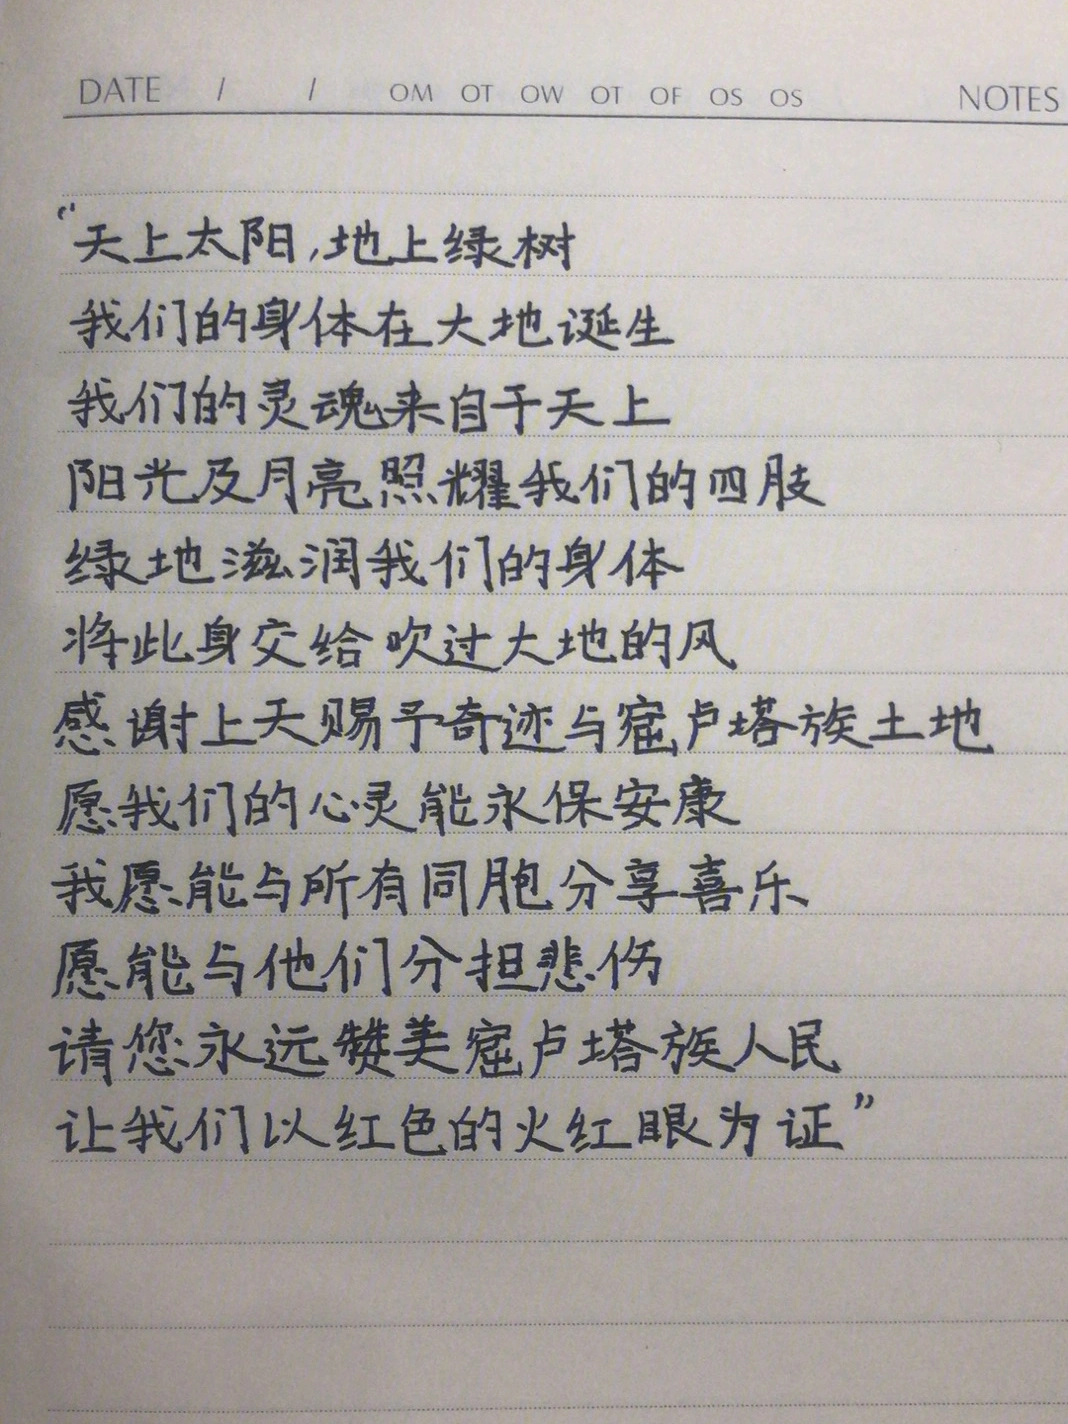 DATE / / OM OT OW OT OF OS OS NOTES
“天上太阳,地上绿树
我们的身体在大地诞生
我们的灵魂来自于天上
阳光及月亮照耀我们的四肢
绿地滋润我们的身体
将此身交给吹过大地的风
感谢上天赐予奇迹与窟卢塔族土地
愿我们的心灵能永保安康
我愿能与所有同胞分享喜乐
愿能与他们分担悲伤
请您永远赞美窟卢塔族人民
让我们以红色的火红眼为证”